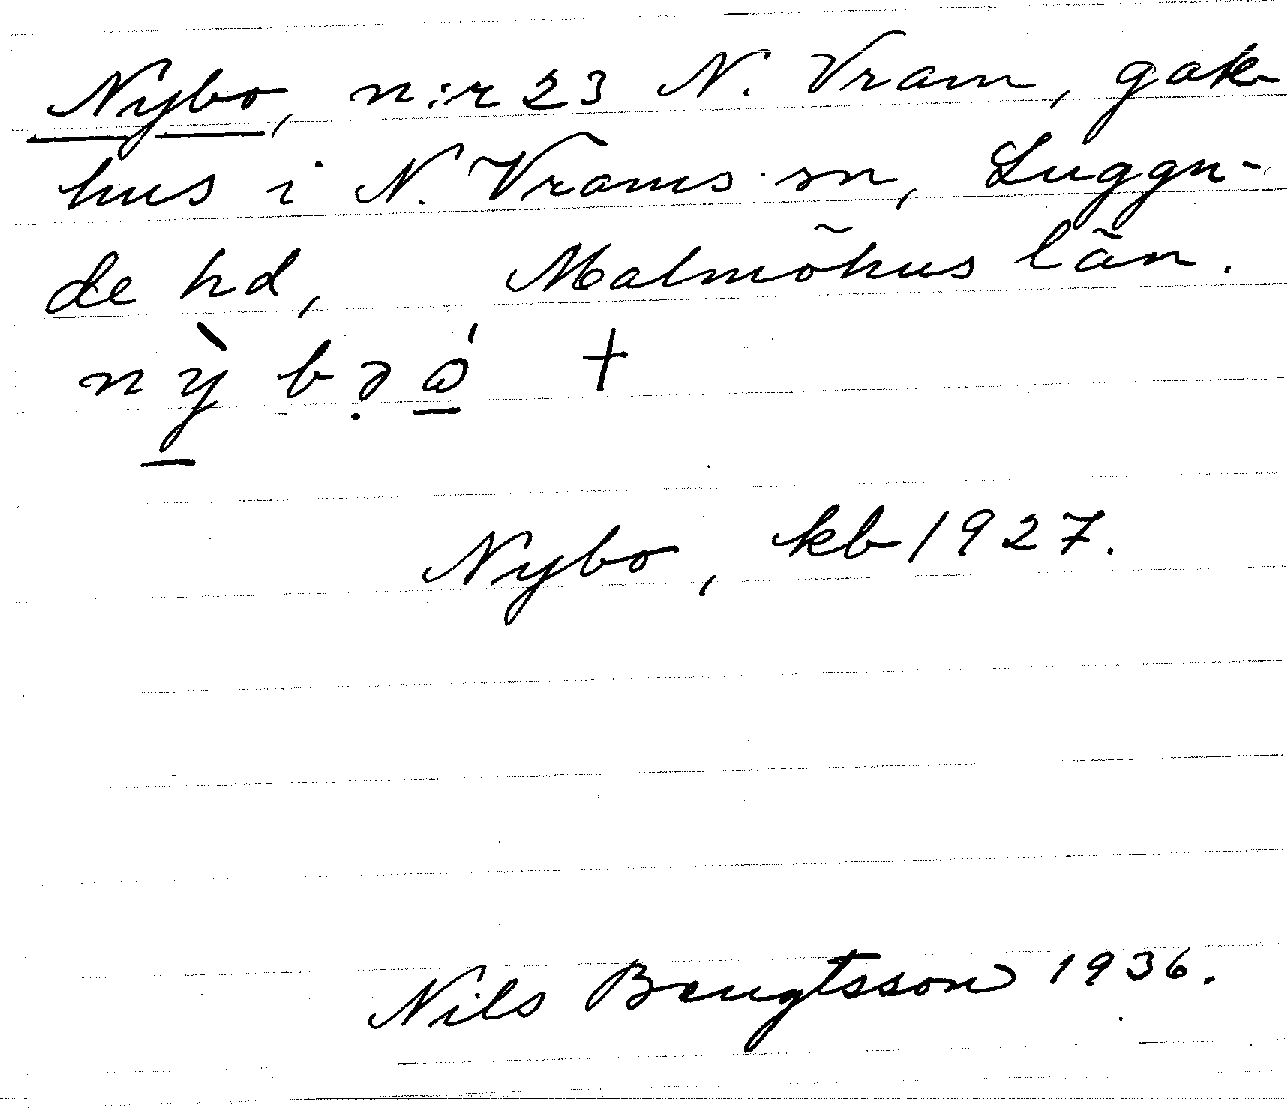 Nybo, n:r 23 N. Vram, gatehus i N. Vrams sn, Luggu-
de hd, Malmöhus län.
nỳ bǝó +
Nybo, kb 1927.
Nils Bengtsson 1936.